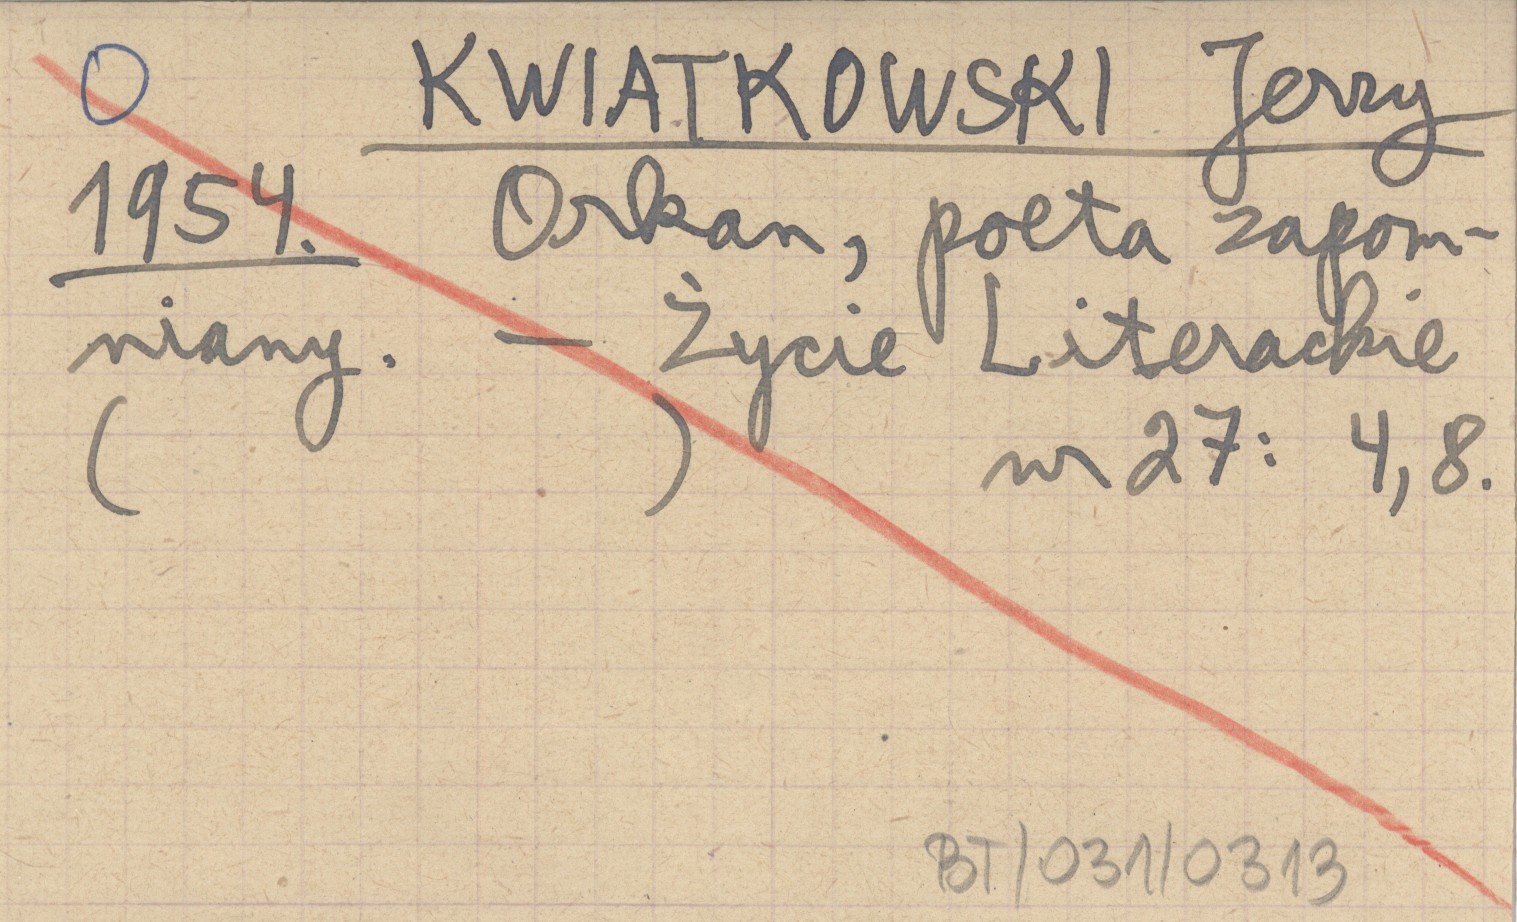 O KWIATKOWSKI Jerzy
1954. Orkan, poeta zapom-
niany. — Życie Literackie
( ) nr 27: 4, 8.
BT/031/0313